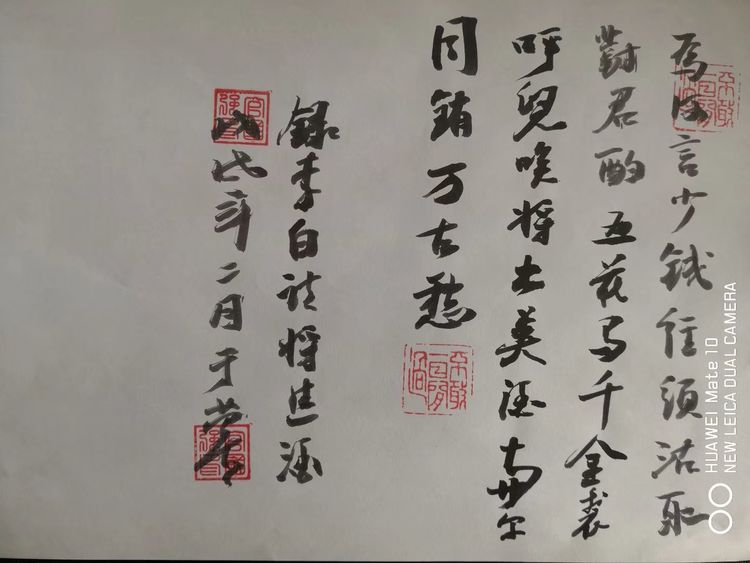 為何言少錢径須沽取
對君酌五花马千金裘
呼兒唤将出美酒与尔
同銷万古愁
錄李白詩将進酒
戊戌年二月于
HUAWEI Mate 10
NEW LEICA DUAL CAMERA